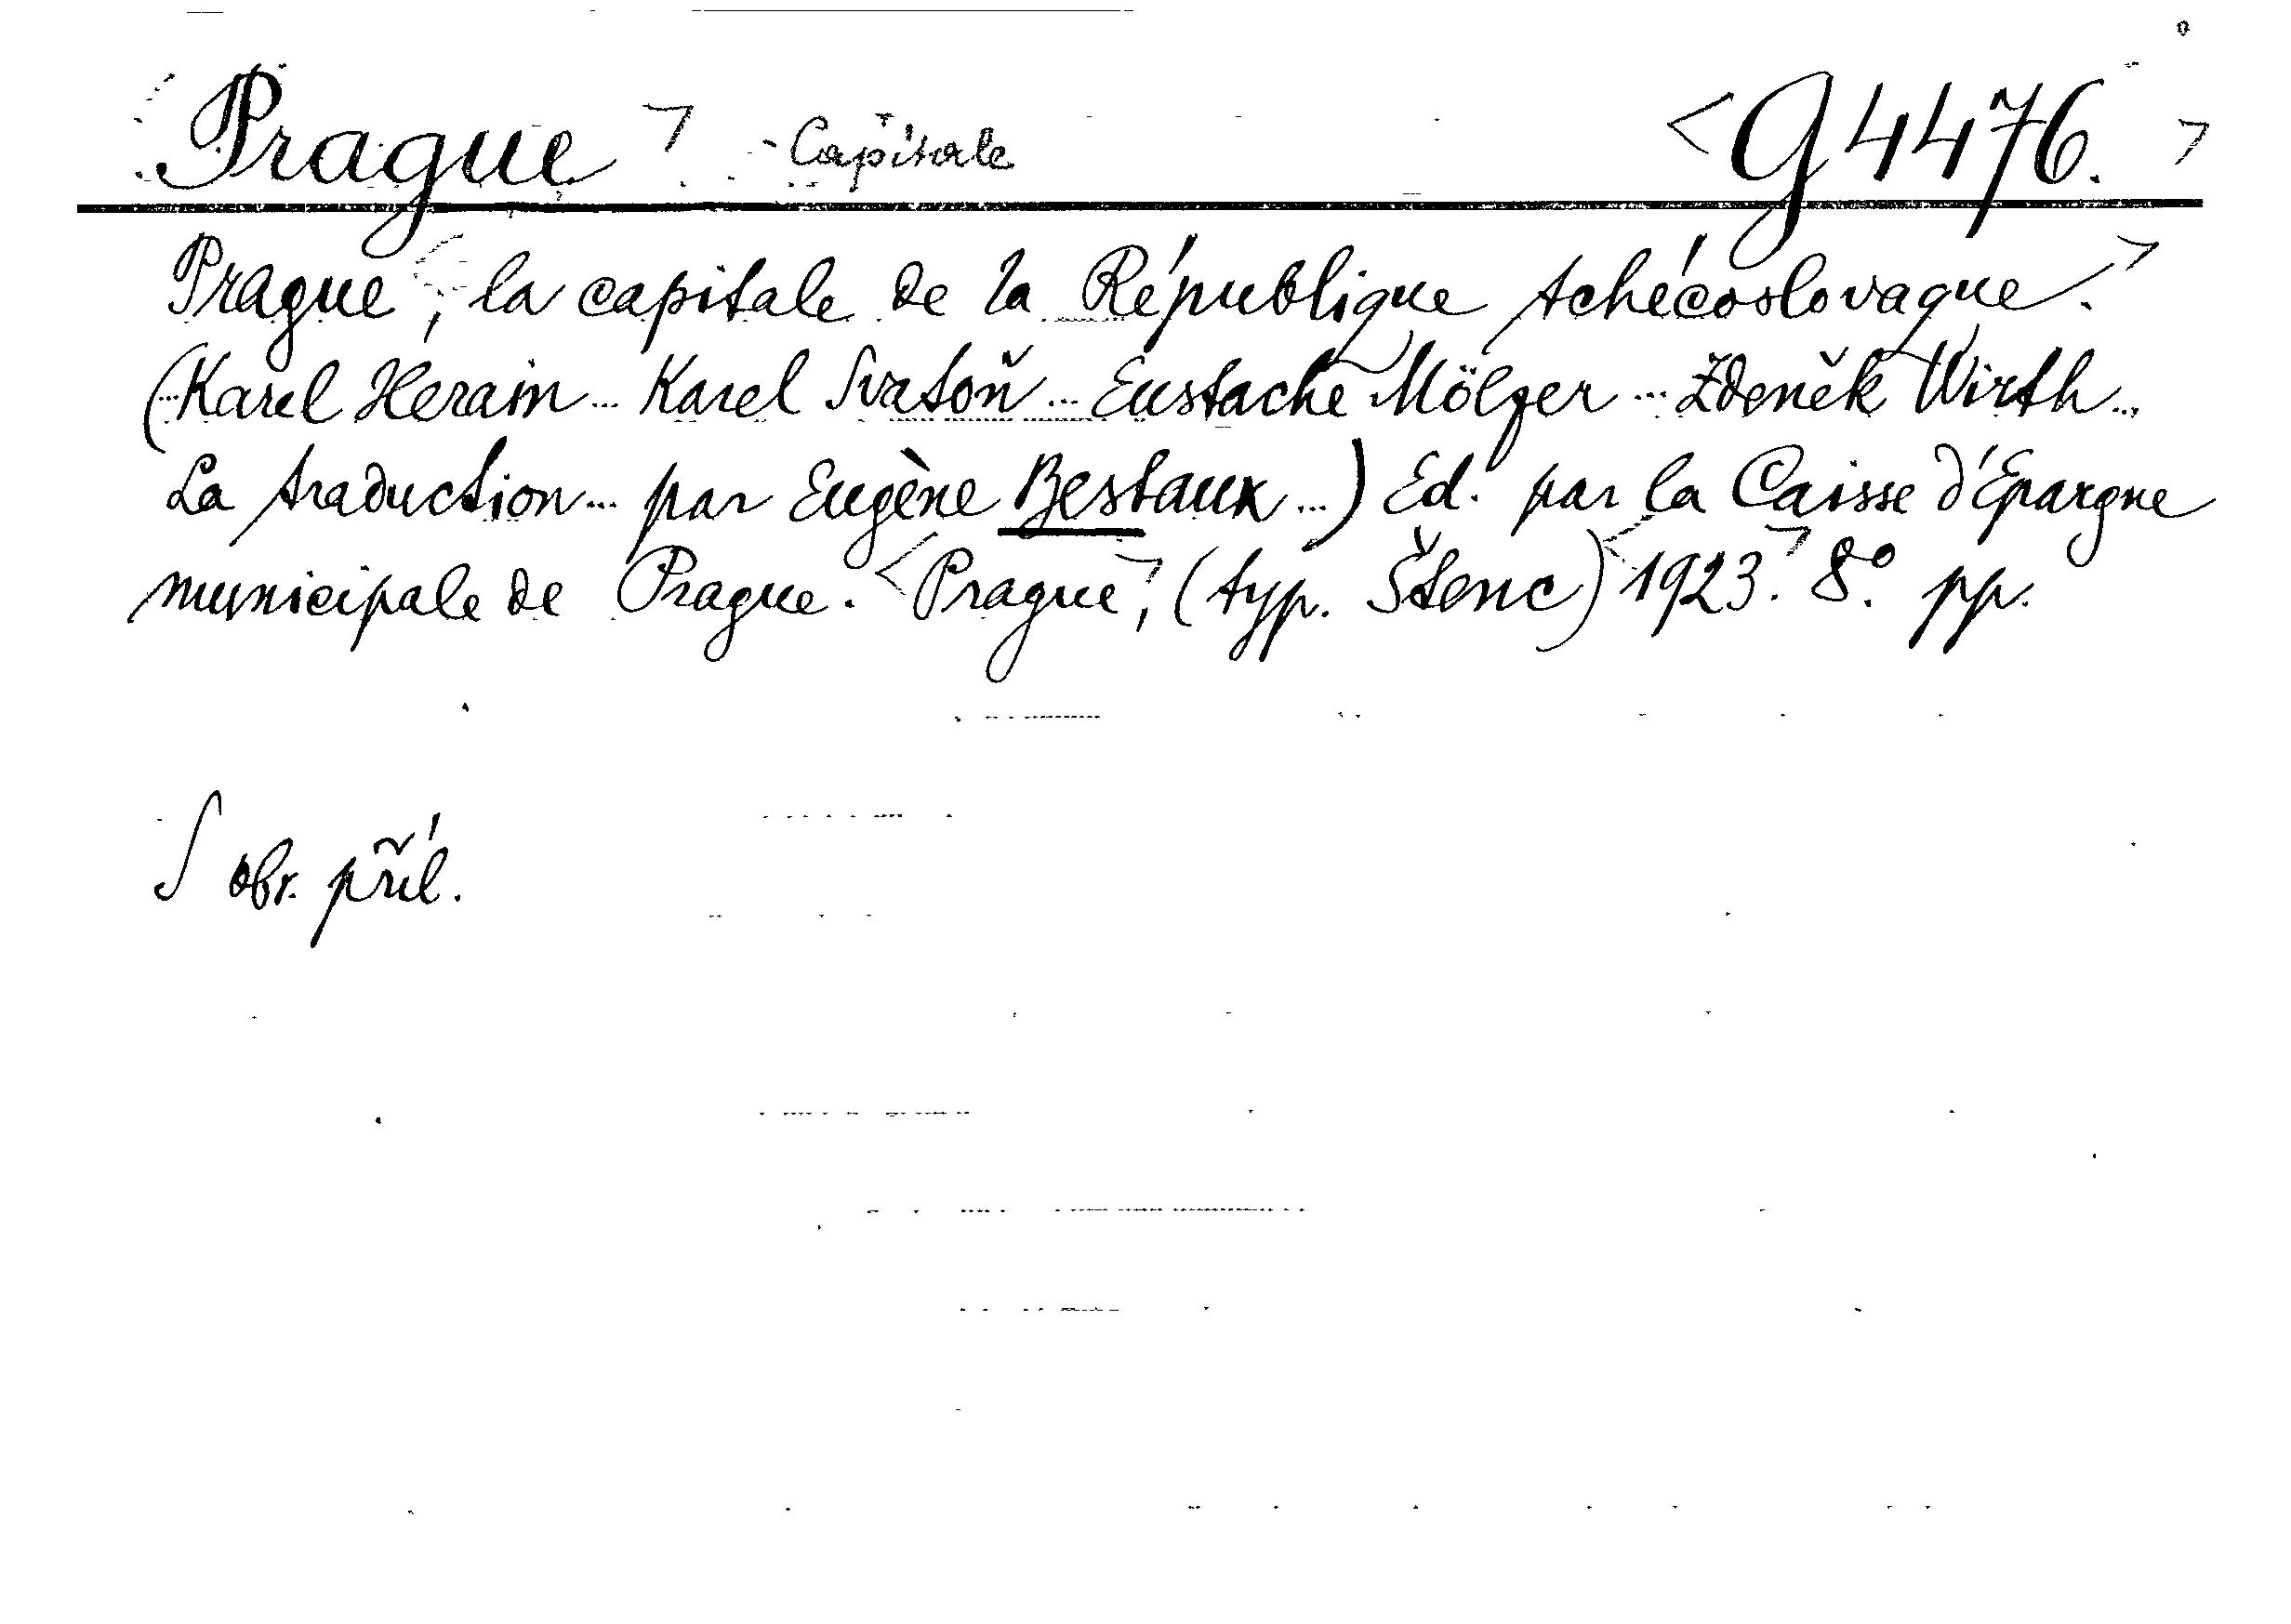 Prague > - Capitale <G 4476. >
Prague <, la capitale de la République tchécoslovaque.>
(...Karel Herain... Karel Svatoň... Eustache Mölzer... Zdeněk Wirth...
La traduction... par Eugène Bestaux...) Ed. par la Caisse d'Epargne
municipale de Prague. <Prague>, (typ. Štenc) <1923.> 8°. pp.
S obr. příl.